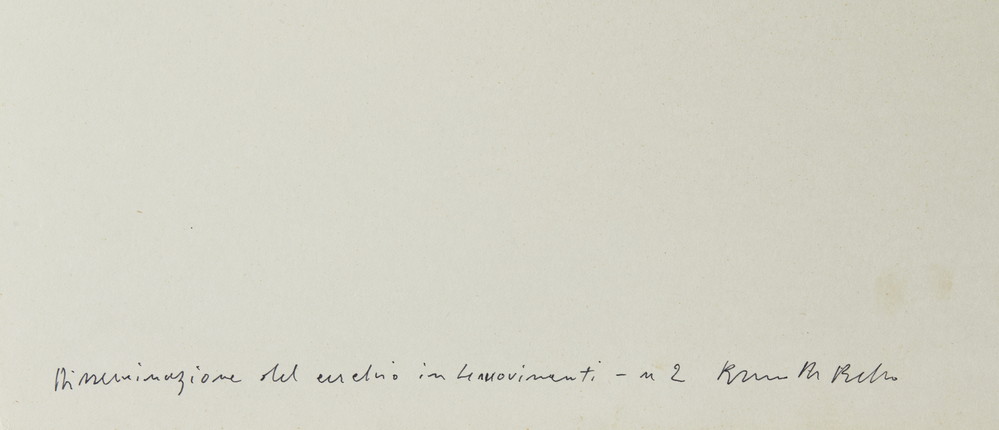 Disseminazione del cerchio in 4 movimenti - n 2 Bruno Di Bello